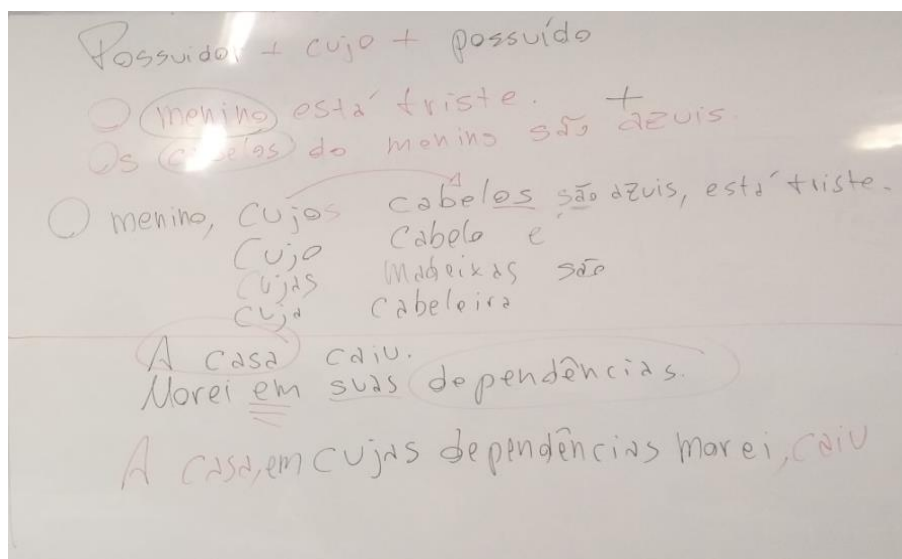 Possuidor + cujo + possuído
O menino está triste. +
Os cabelos do menino são azuis.
O menino, cujos cabelos são azuis, está triste.
Cujo cabelo é
Cujas madeixas são
Cuja cabeleira
A casa caiu.
Morei em suas dependências.
A casa, em cujas dependências morei, caiu